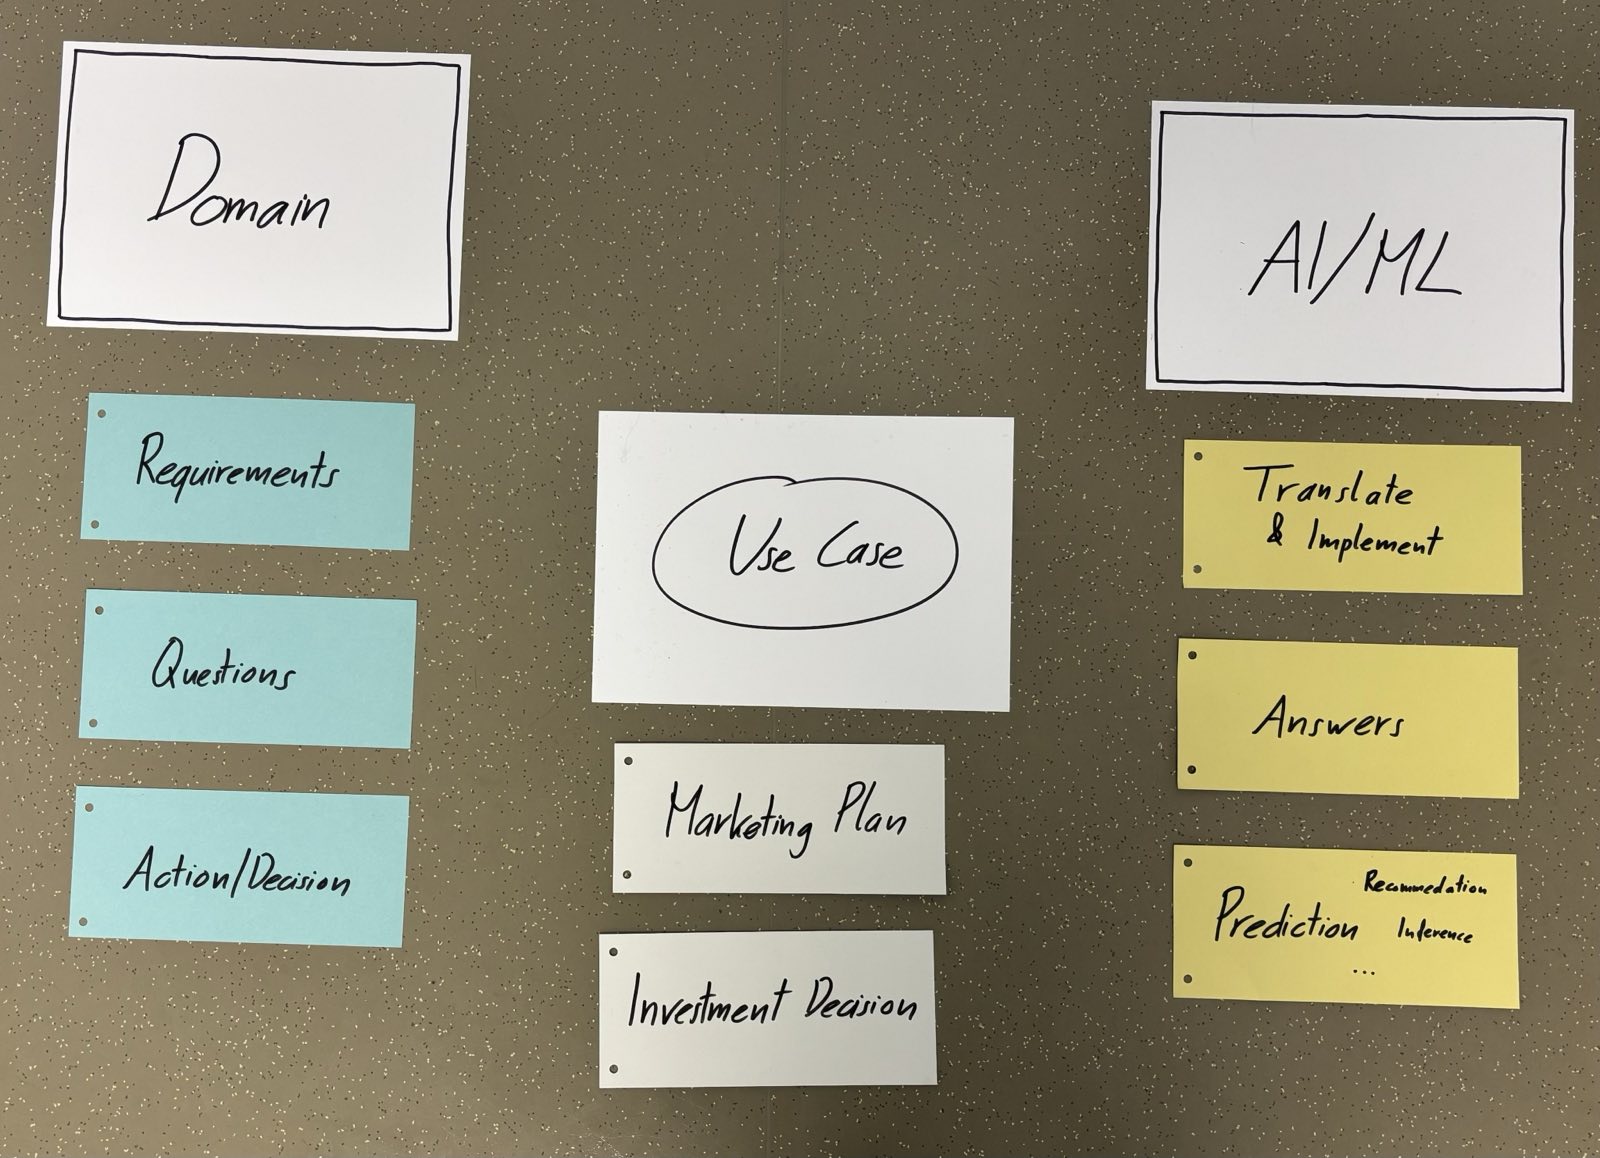 Domain
Requirements
Questions
Action/Decision
Use Case
Marketing Plan
Investment Decision
AI/ML
Translate
& Implement
Answers
Recommedation
Prediction
Inference
...